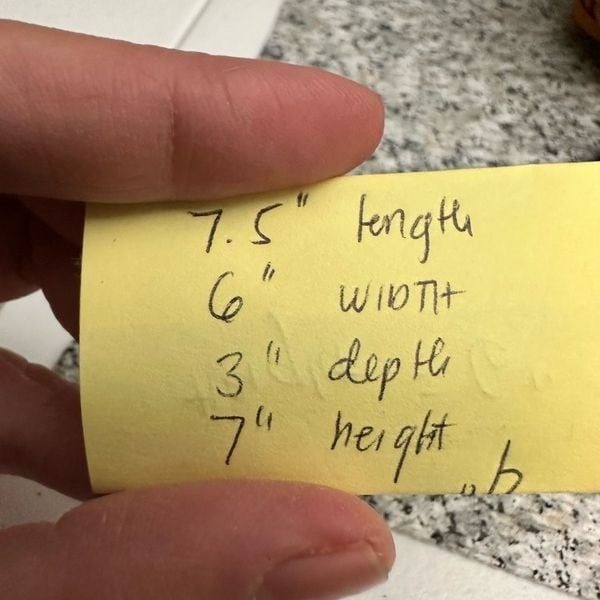 7.5" length
6" WIDTH
3" depth
7" height